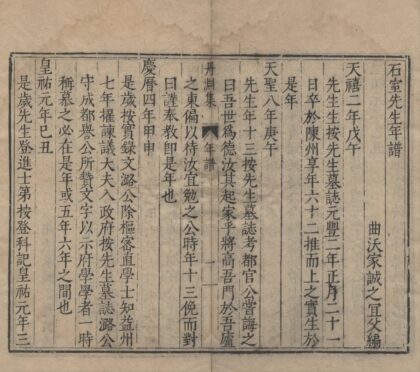 石室先生年譜
曲沃家誠之宜父編
天禧二年戊午
先生生按先生墓誌元豐二年正月二十一
日卒於陳州享年六十二推而上之實生於
是年
天聖八年庚午
先生年十三按先生墓誌考都官公嘗誨之
曰吾世爲德汝其起家乎將高吾門於吾廬
丹淵集
年譜
一
之東偏以待汝宜勉之公時年十三俛而對
曰謹奉教卽是年也
慶曆四年甲申
是歲按實錄文潞公除樞密直學士知益州
七年擢諫議大夫入政府按先生墓誌潞公
守成都譽公所贄文字以示府學學者一時
稱慕之必在是年或五年六年之間也
皇祐元年己丑
是歲先生登進士第按登科記皇祐元年三